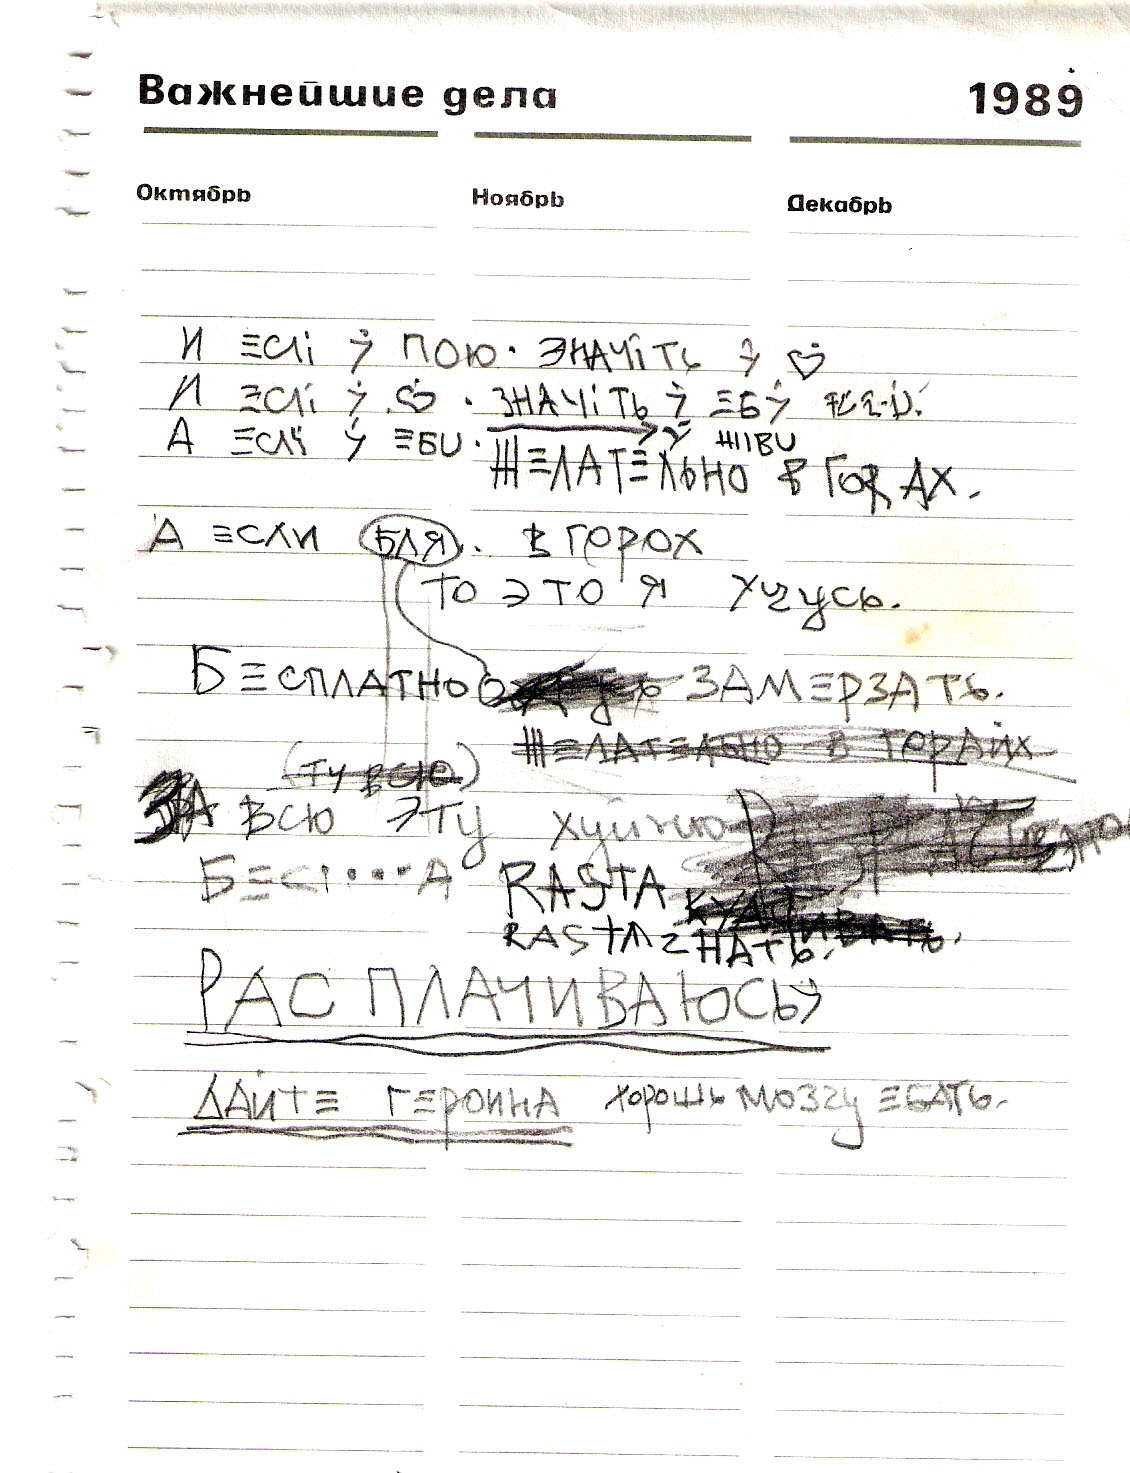 Важнейшие дела 1989
Октябрь Ноябрь Декабрь
И ЕСЛі Ў ПОЮ. ЗНАЧіТЬ Ў ♡
И ЕСЛі Ў ♡. ЗНАЧіТЬ Ў ЕБУ
А ЕСЛЇ Ў ЕБU. Ў ЖIВU
ЖЕЛАТЕЛЬНО В ГОРАХ.
А ЕСЛИ БЛЯ. В ГОРОХ
ТО ЭТО Я УЧУСЬ.
БЕСПЛАТНО ЗАМЕРЗАТЬ.
ЖЕЛАТЕЛЬНО В ГОРАЙХ
(ТУ ВСЮ)
ЗА ВСЮ ЭТУ ХУЙНЮ
RASTA
RASTA ГНАТЬ.
РАСПЛАЧИВАЮСЬ Ў
ДАЙТЕ ГЕРОИНА ХОРОШЬ МОЗГУ ЕБАТЬ.